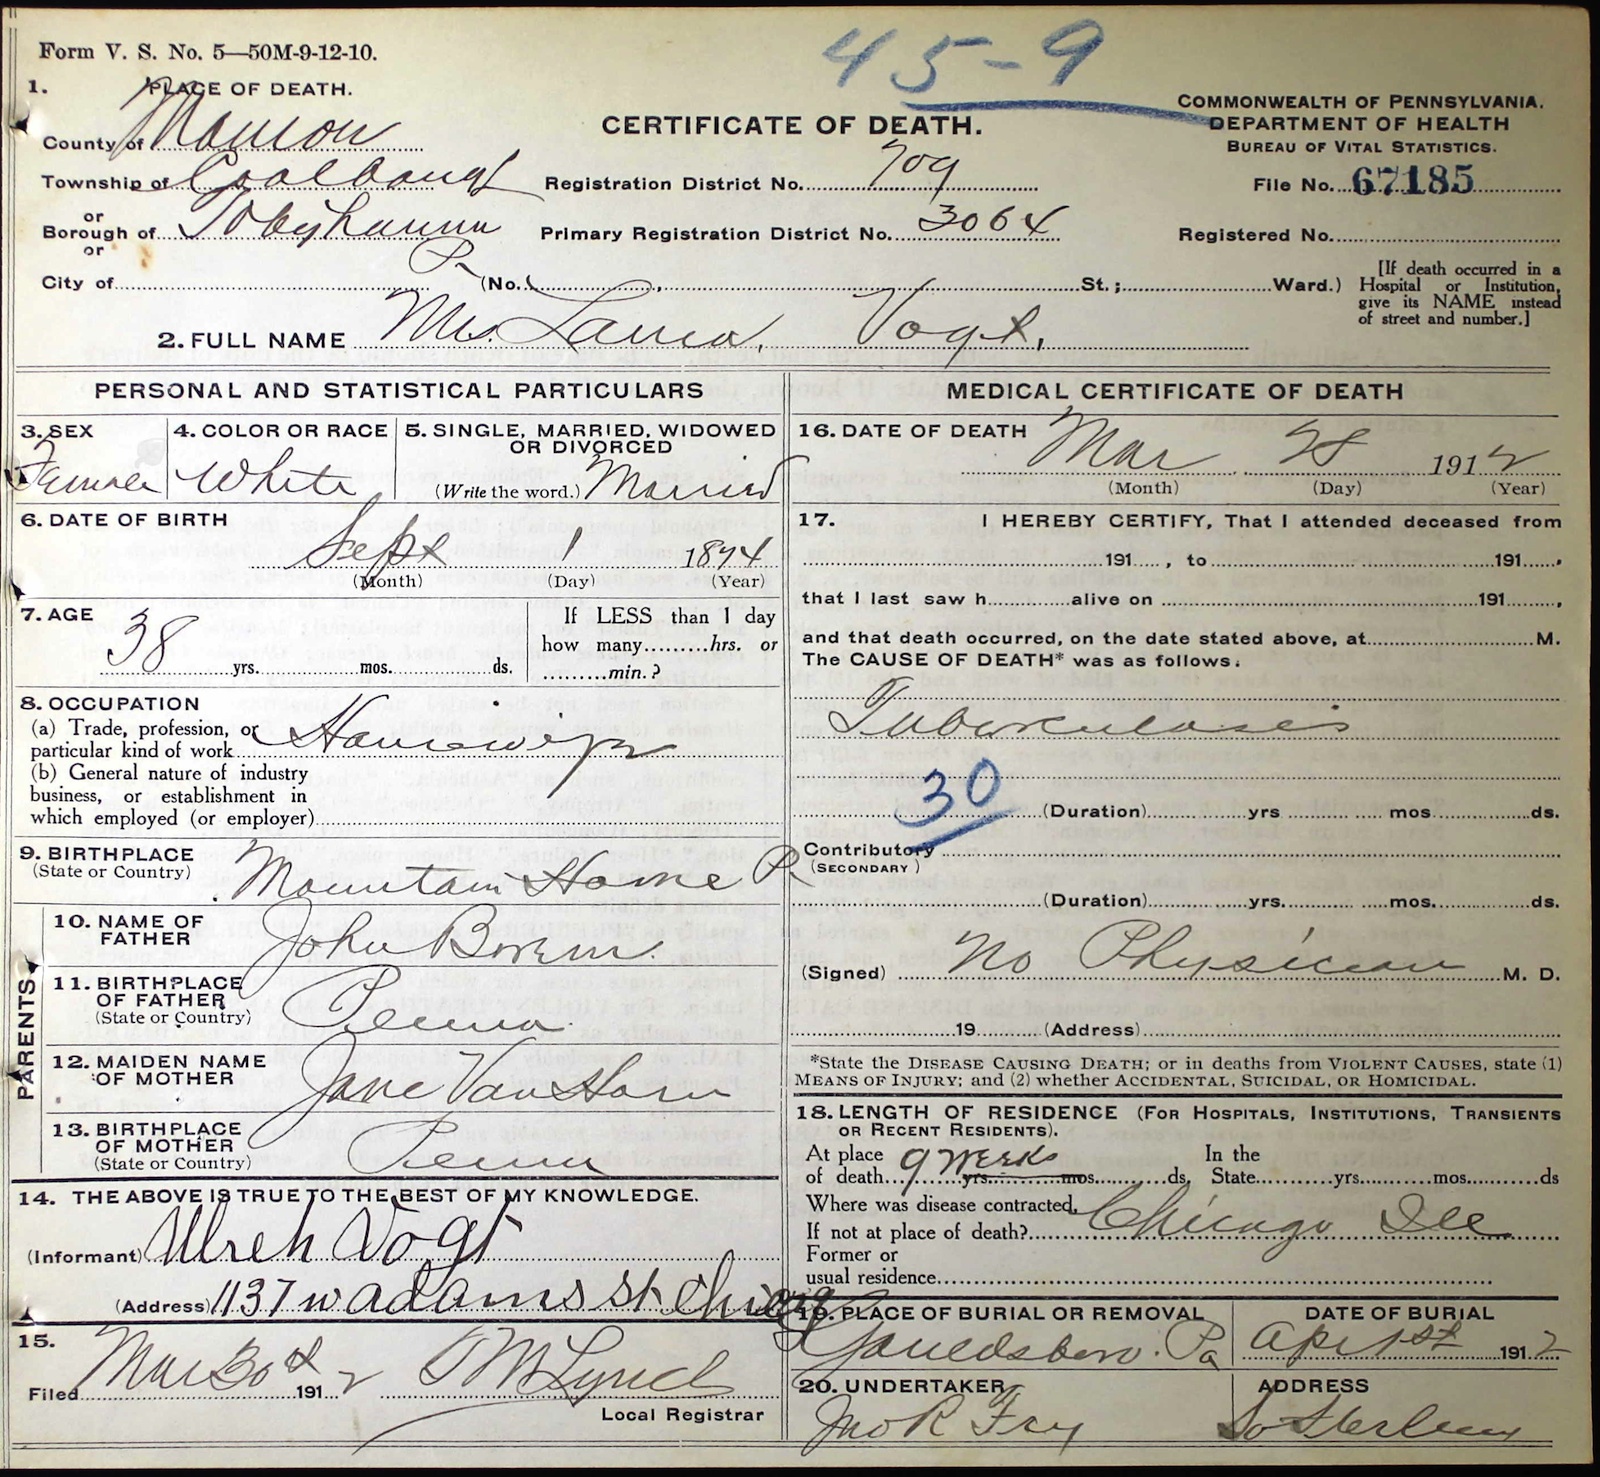 Form V. S. No. 5—50M-9-12-10.
45-9
1. PLACE OF DEATH.
County of Monroe
Township of Coolbaugh
or
Borough of Tobyhanna
or
Pa
City of (No. , St.; Ward.)
CERTIFICATE OF DEATH.
Registration District No. 709
Primary Registration District No. 3064
COMMONWEALTH OF PENNSYLVANIA.
DEPARTMENT OF HEALTH
BUREAU OF VITAL STATISTICS.
File No. 67185
Registered No.
[If death occurred in a
Hospital or Institution,
give its NAME instead
of street and number.]
2. FULL NAME Mrs. Laura. Vogt.
PERSONAL AND STATISTICAL PARTICULARS
3. SEX
Female
4. COLOR OR RACE
White
5. SINGLE, MARRIED, WIDOWED
OR DIVORCED
(Write the word.) Married
6. DATE OF BIRTH
Sept 1 1874
(Month) (Day) (Year)
7. AGE
38 yrs. mos. ds.
If LESS than 1 day
how many hrs. or
min.?
8. OCCUPATION
(a) Trade, profession, or
particular kind of work Housewife
(b) General nature of industry
business, or establishment in
which employed (or employer)
9. BIRTHPLACE
(State or Country) Mountain Home Pa
PARENTS
10. NAME OF
FATHER John
11. BIRTHPLACE
OF FATHER
(State or Country) Penna.
12. MAIDEN NAME
OF MOTHER Jane Van Horn
13. BIRTHPLACE
OF MOTHER
(State or Country) Penna
14. THE ABOVE IS TRUE TO THE BEST OF MY KNOWLEDGE.
(Informant) Ulreh Vogt
(Address) 1137 W adams st chicag
15.
Filed Mar 30th 1912 Lynch
Local Registrar
MEDICAL CERTIFICATE OF DEATH
16. DATE OF DEATH
Mar 28 1912
(Month) (Day) (Year)
17. I HEREBY CERTIFY, That I attended deceased from
191 , to 191 .
that I last saw h alive on 191 ,
and that death occurred, on the date stated above, at M.
The CAUSE OF DEATH* was as follows:
Tuberculosis
30
(Duration) yrs mos. ds.
Contributory
(SECONDARY)
(Duration) yrs. mos. ds.
(Signed) No Physician M. D.
19 (Address)
*State the DISEASE CAUSING DEATH; or in deaths from VIOLENT CAUSES, state (1)
MEANS OF INJURY; and (2) whether ACCIDENTAL, SUICIDAL, OR HOMICIDAL.
18. LENGTH OF RESIDENCE (FOR HOSPITALS, INSTITUTIONS, TRANSIENTS
OR RECENT RESIDENTS).
At place In the
of death 9 weeks yrs. mos. ds. State yrs. mos. ds
Where was disease contracted,
If not at place of death? Chicago Ill
Former or
usual residence
19. PLACE OF BURIAL OR REMOVAL
Gouldsboro. Pa
DATE OF BURIAL
Apr 1st 1912
20. UNDERTAKER
Jno R Frey
ADDRESS
So Sterling